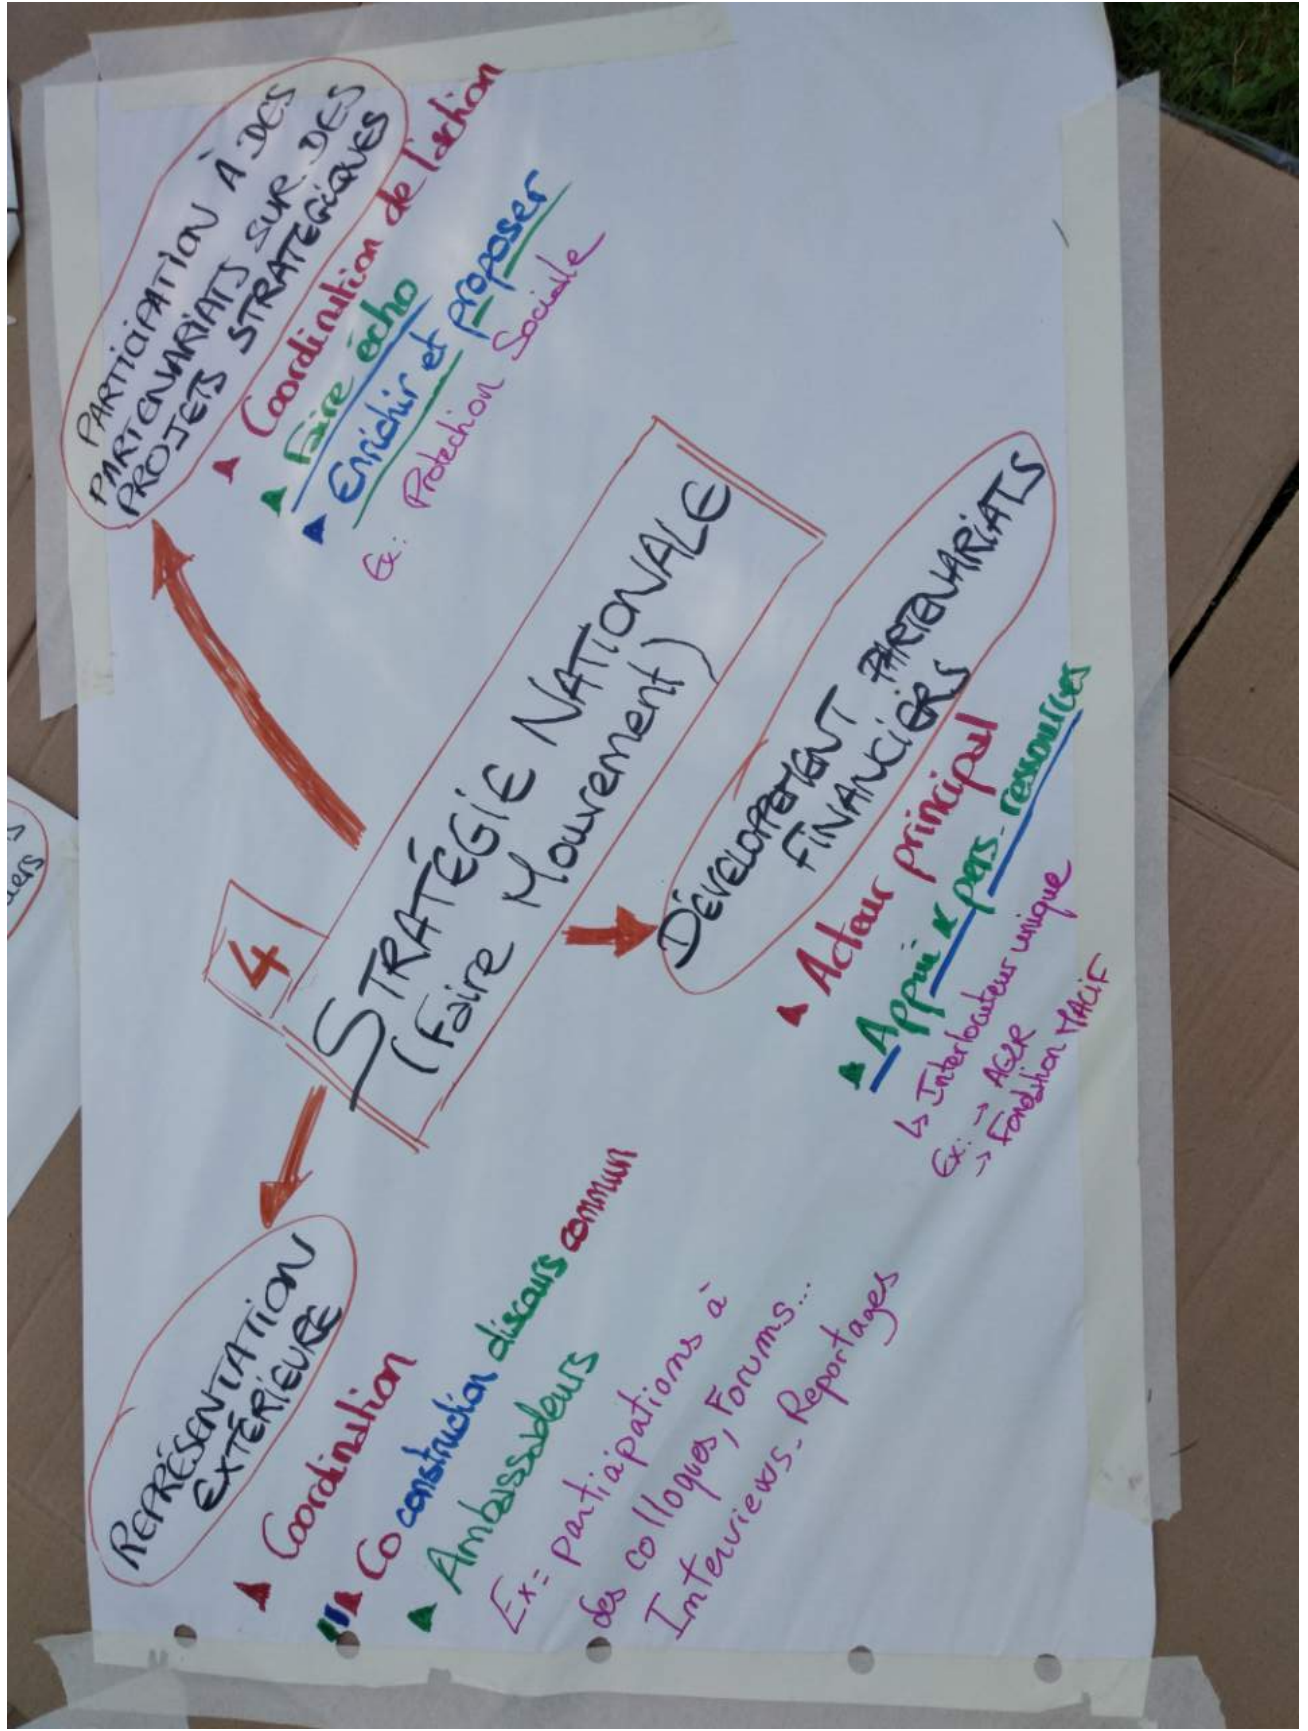 4
STRATÉGIE NATIONALE
(Faire Mouvement)
REPRÉSENTATION
EXTÉRIEURE
Coordination
Co construction discours commun
Ambassadeurs
Ex = participations à
des colloques, Forums...
Interviews - Reportages
PARTICIPATION À DES
PARTENARIATS SUR DES
PROJETS STRATEGIQUES
Coordination de l'action
Faire écho
Enrichir et proposer
Ex: Protection Sociale
DÉVELOPPEMENT PARTENARIATS
FINANCIERS
Acteur principal
Appui x pers-ressources
↳ Interlocuteur unique
Ex: → AG2R
→ Fondation MACIF